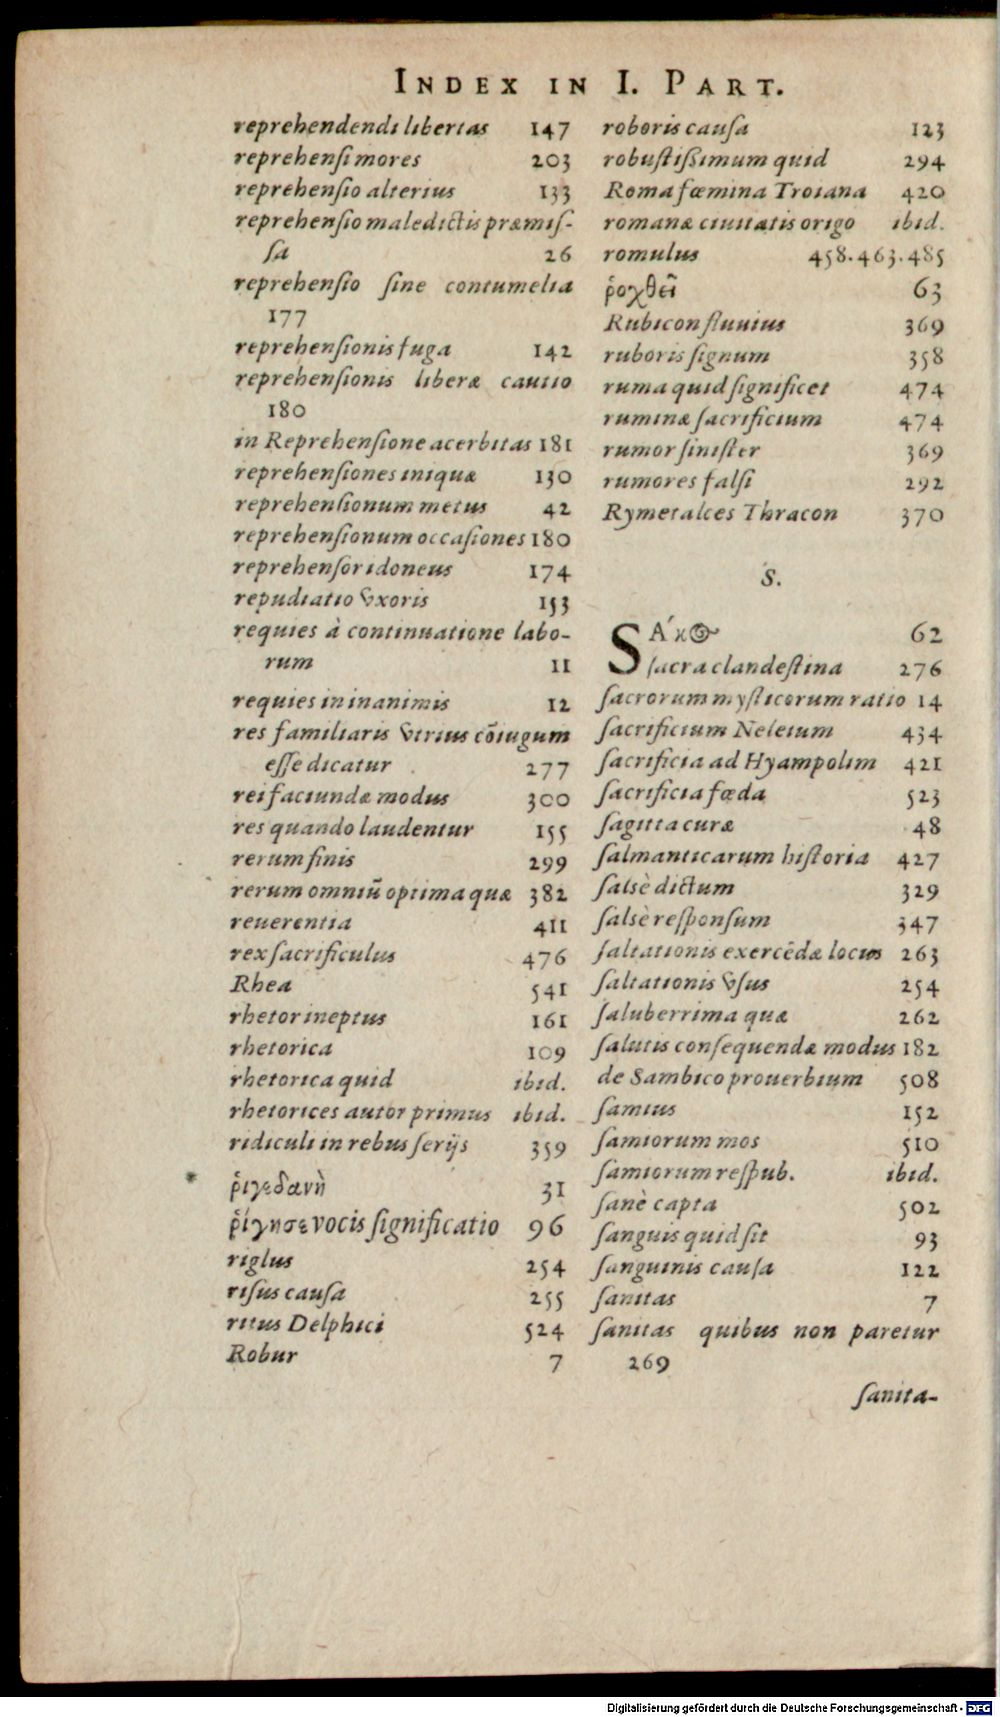 INDEX IN I. PART.
reprehendendi libertas 147
reprehensi mores 203
reprehensio alterius 133
reprehensio maledictis præmis-
sa 26
reprehensio sine contumelia
177
reprehensionis fuga 142
reprehensionis liberæ cautio
180
in Reprehensione acerbitas 181
reprehensiones iniquæ 130
reprehensionum metus 42
reprehensionum occasiones 180
reprehensor idoneus 174
repudiatio vxoris 153
requies à continuatione labo-
rum 11
requies in inanimis 12
res familiaris vtrius cōiugum
esse dicatur 277
rei faciundæ modus 300
res quando laudentur 155
rerum finis 299
rerum omniū optima quæ 382
reuerentia 411
rex sacrificulus 476
Rhea 541
rhetor ineptus 161
rhetorica 109
rhetorica quid ibid.
rhetorices autor primus ibid.
ridiculi in rebus serijs 359
ῥιγεδανὴ 31
ῥίγησε vocis significatio 96
riglus 254
risus causa 255
ritus Delphici 524
Robur 7
roboris causa 123
robustissimum quid 294
Roma fœmina Troiana 420
romanæ ciuitatis origo ibid.
romulus 458.463.485
ῥοχθεῖ 63
Rubicon fluuius 369
ruboris signum 358
ruma quid significet 474
ruminæ sacrificium 474
rumor sinister 369
rumores falsi 292
Rymetalces Thracon 370
S.
SΑ´κος 62
sacra clandestina 276
sacrorum mysticorum ratio 14
sacrificium Neleium 434
sacrificia ad Hyampolim 421
sacrificia fœda 523
sagitta curæ 48
salmanticarum historia 427
salsè dictum 329
salsè responsum 347
saltationis exercēdæ locus 263
saltationis vsus 254
saluberrima quæ 262
salutis consequendæ modus 182
de Sambico prouerbium 508
samius 152
samiorum mos 510
samiorum respub. ibid.
sanè capta 502
sanguis quid sit 93
sanguinis causa 122
sanitas 7
sanitas quibus non paretur
269
sanita-
Digitalisierung gefördert durch die Deutsche Forschungsgemeinschaft - DFG